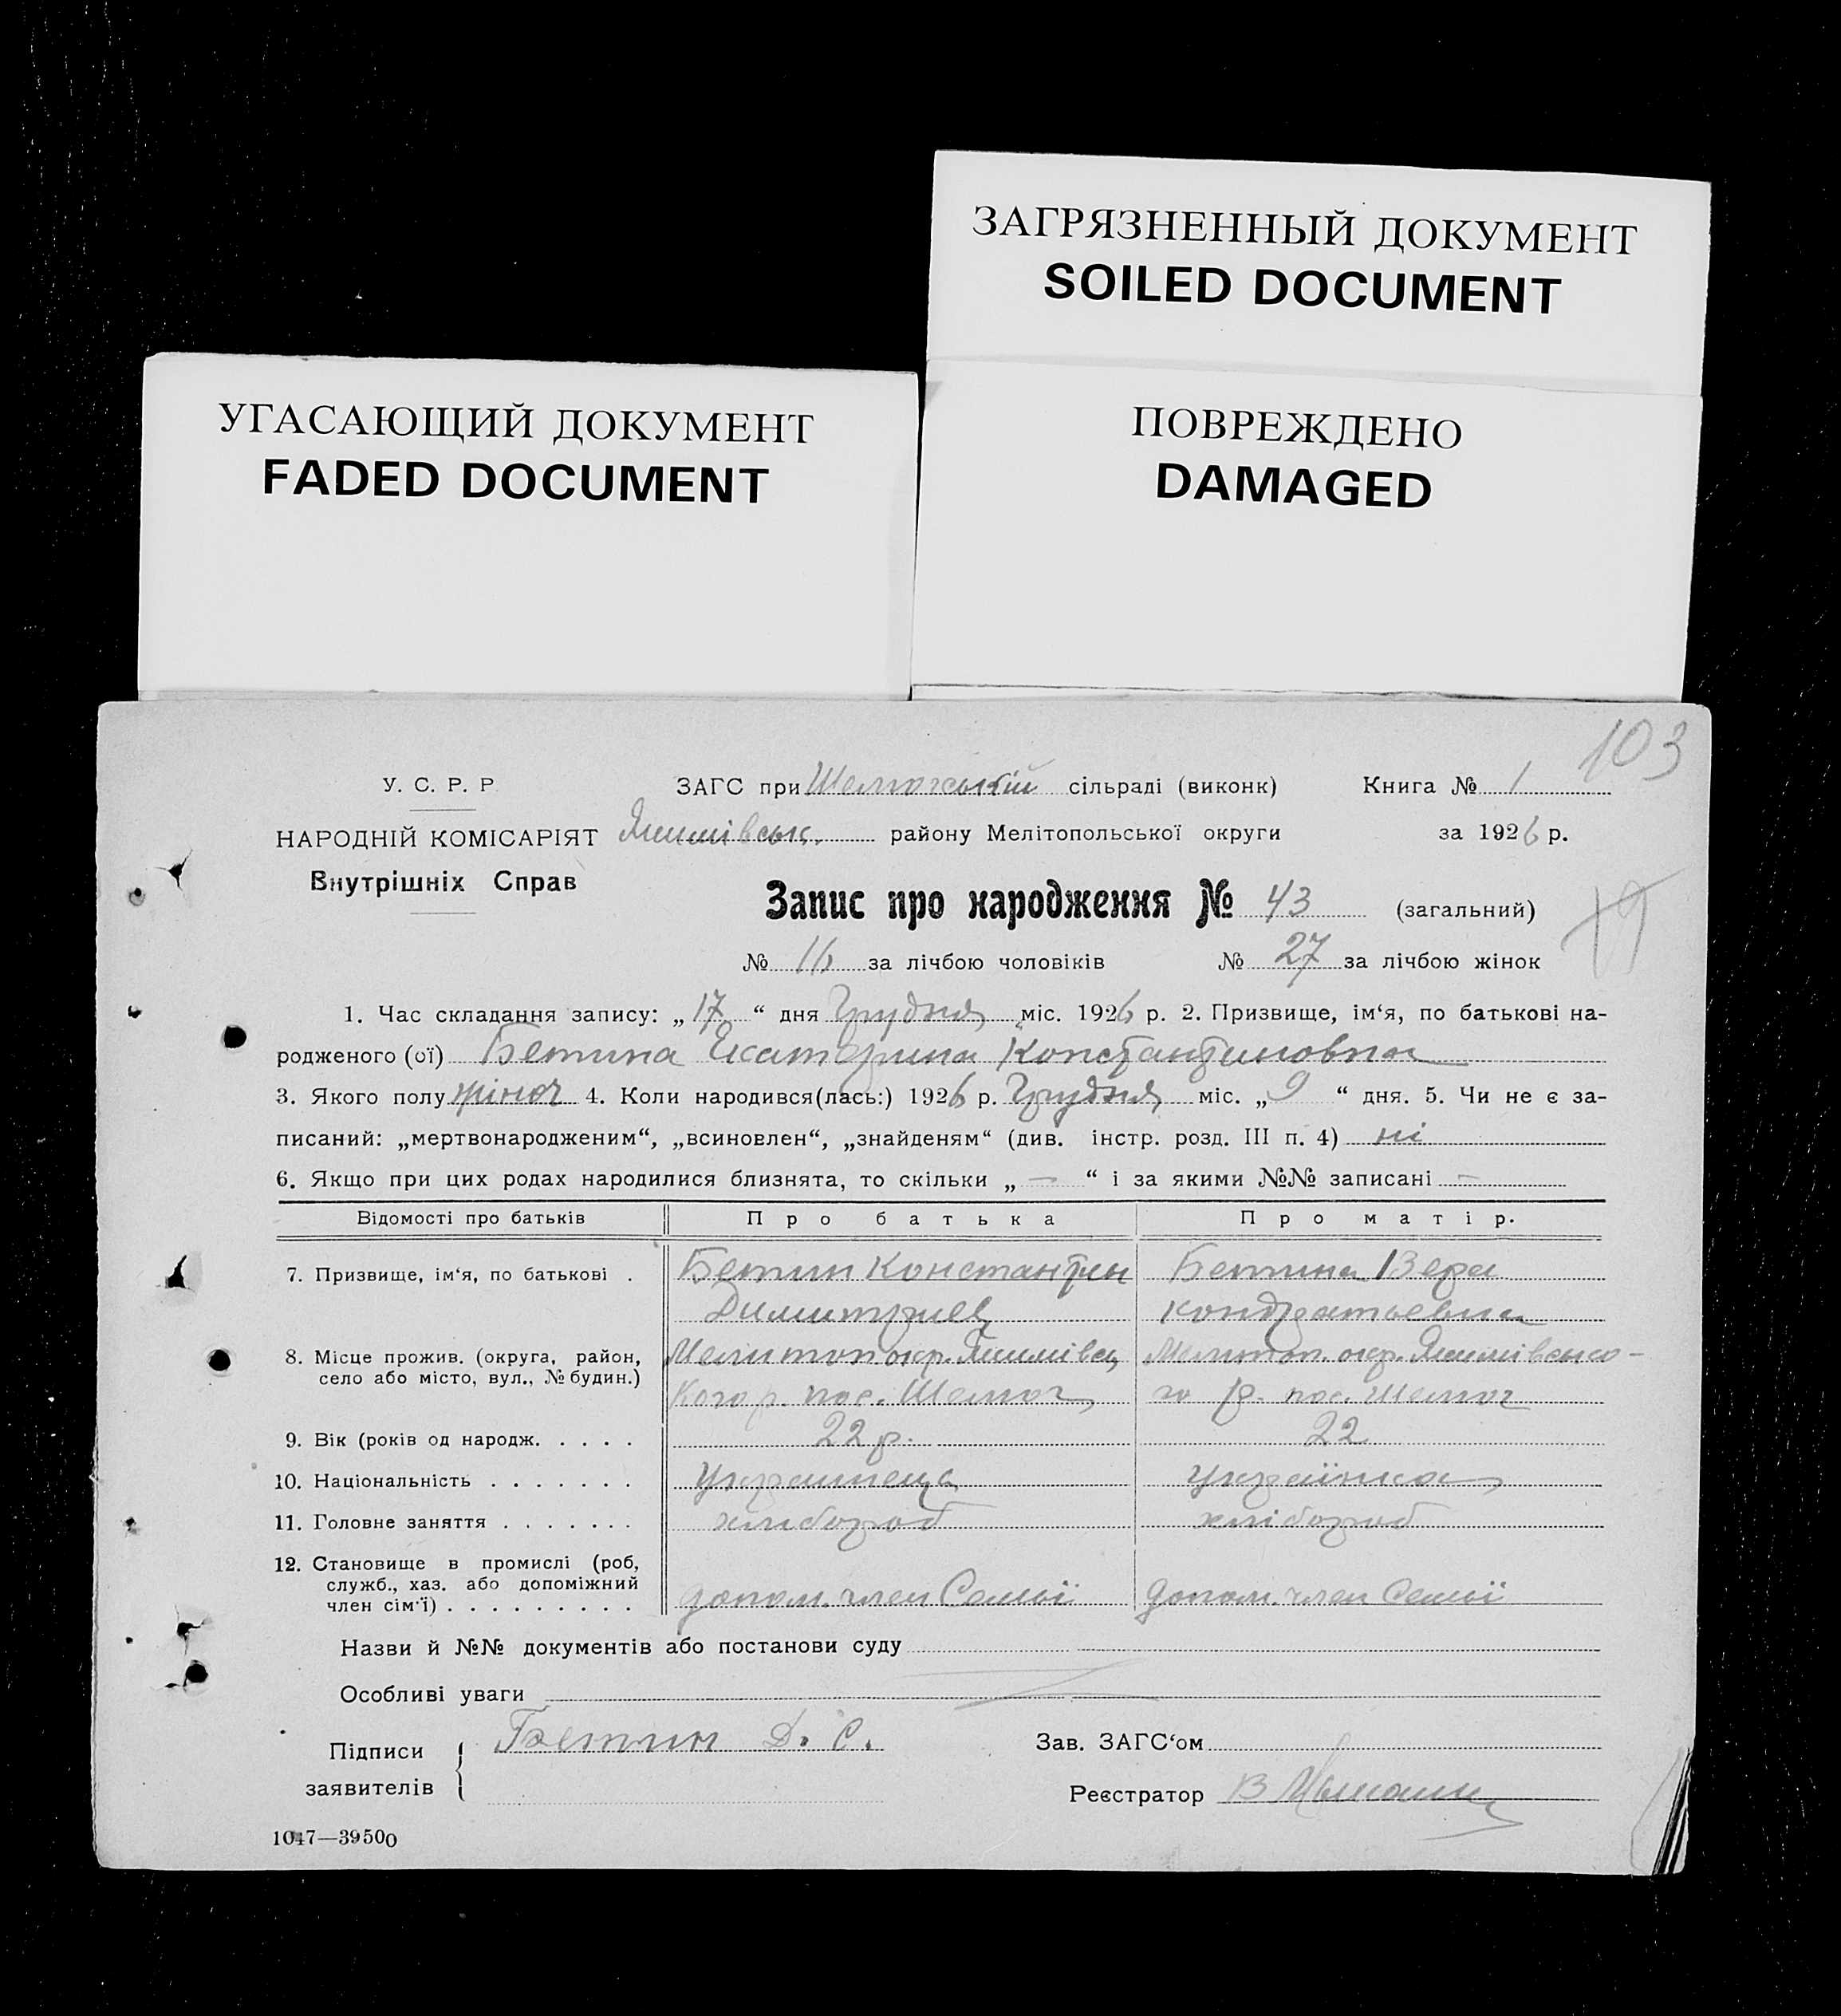 ЗАГРЯЗНЕННЫЙ ДОКУМЕНТ
SOILED DOCUMENT
УГАСАЮЩИЙ ДОКУМЕНТ
FADED DOCUMENT
ПОВРЕЖДЕНО
DAMAGED
103
У. С. Р. Р
ЗАГС при Шелюгській сільраді (виконк) Книга № 1
НАРОДНІЙ КОМІСАРІЯТ Якимівськ. району Мелітопольської округи за 1926 р.
Внутрішніх Справ
Запис про народження № 43 (загальний)
№ 16 за лічбою чоловіків № 27 за лічбою жінок
1. Час складання запису: „17“ дня Грудня міс. 1926 р. 2. Призвище, ім‘я, по батькові на-
родженого (ої) Бетина Екатерина Константиновна
3. Якого полу жіноч 4. Коли народився(лась:) 1926 р. Грудня міс. „9“ дня. 5. Чи не є за-
писаний: „мертвонародженим“, „всиновлен“, „знайденям“ (див. інстр. розд. III п. 4) ні
6. Якщо при цих родах народилися близнята, то скільки „—“ і за якими №№ записані —
Відомості про батьків Про батька Про матір.
7. Призвище, ім‘я, по батькові . Бетин Константин Бетина Вера
Димитриев Кондратьевна
8. Місце прожив. (округа, район, Мелитоп. окр. Якимівсь Мелитоп. окр. Якимівсько-
село або місто, вул., № будин.)
кого р. пос. Шелюг го р. пос. Шелюг
9. Вік (років од народж. . . . . 22 р. 22
10. Національність . . . . . . . Украинець Українка
11. Головне заняття . . . . . . . хлибороб хлібороб
12. Становище в промислі (роб,
служб., хаз. або допоміжний
член сім‘ї) . . . . . . . . . допом. член Семьї допом. член Семьї
Назви й №№ документів або постанови суду
Особливі уваги
Підписи Бетин Д. С. Зав. ЗАГС‘ом
заявителів Реєстратор В
1047—39500